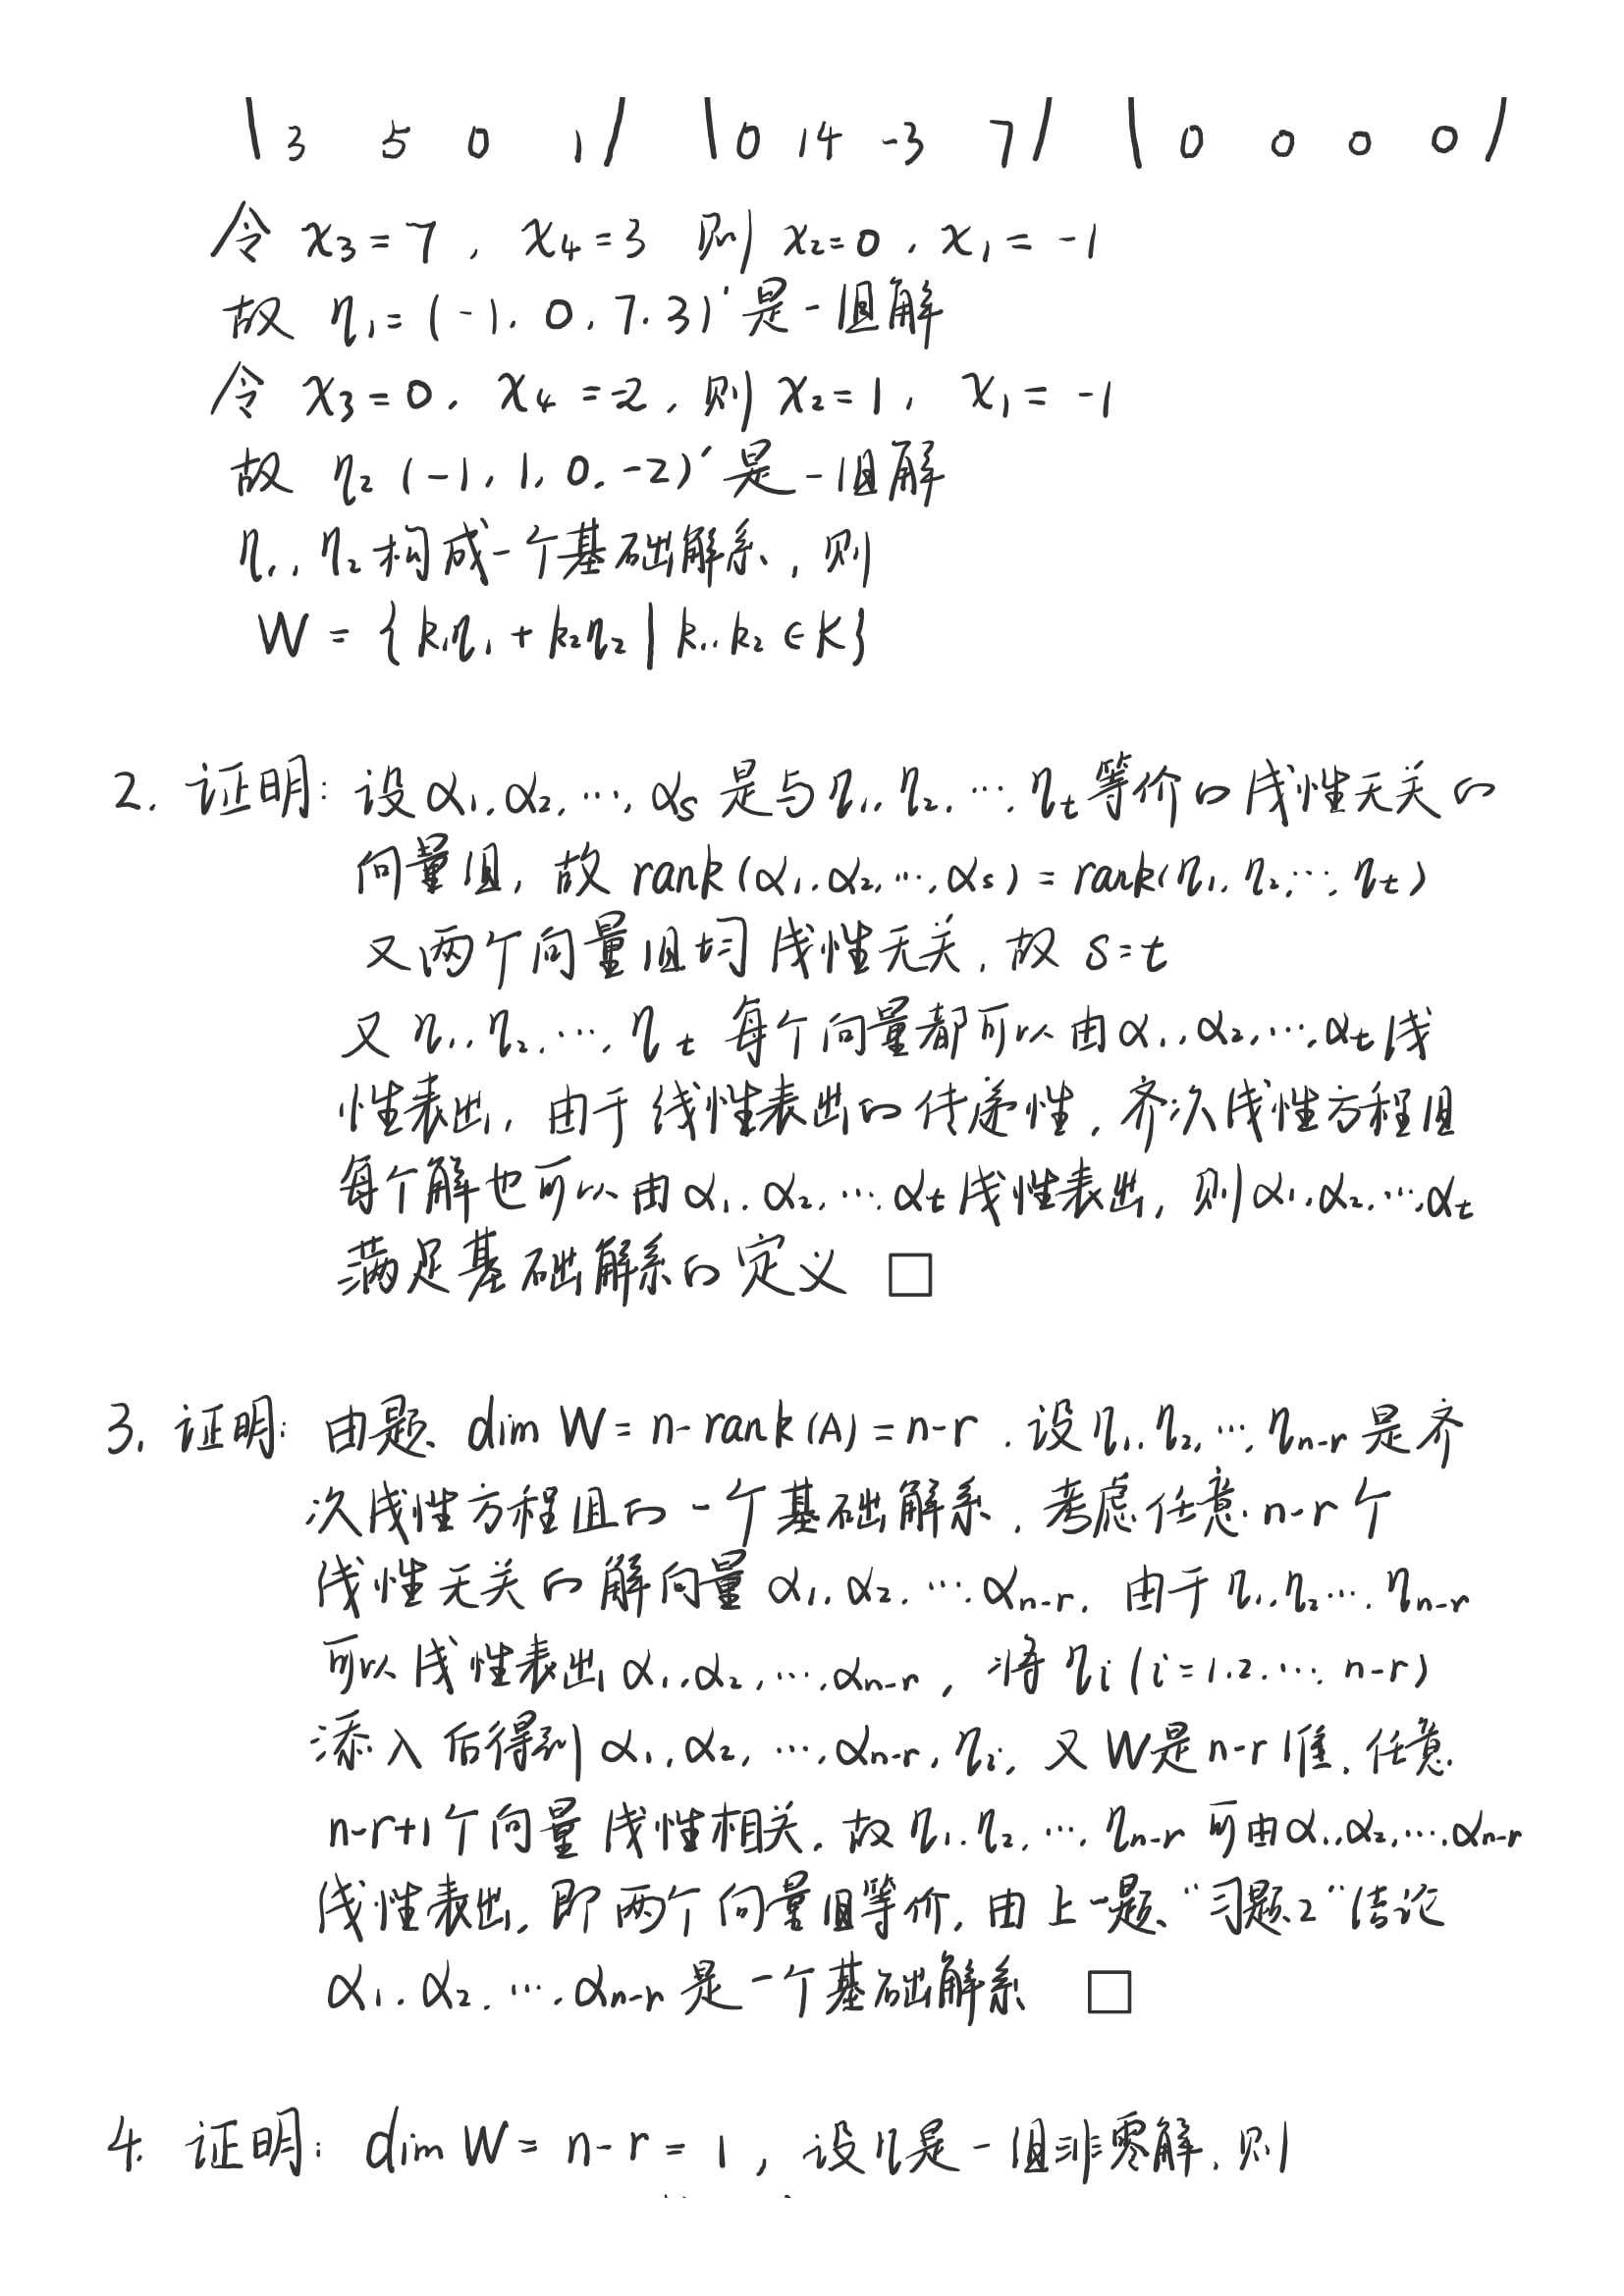 3 5 0 1 0 14 -3 7 0 0 0 0
令 x₃=7, x₄=3 则 x₂=0, x₁=-1
故 η₁=(-1, 0, 7, 3)' 是一组解
令 x₃=0, x₄=-2, 则 x₂=1, x₁=-1
故 η₂ (-1, 1, 0, -2)' 是一组解
η₁, η₂ 构成一个基础解系, 则
W = {k₁η₁ + k₂η₂ | k₁, k₂ ∈ K}
2. 证明: 设 α₁, α₂, …, αs 是与 η₁, η₂, …, ηt 等价的线性无关的
向量组, 故 rank(α₁, α₂, …, αs) = rank(η₁, η₂, …, ηt)
又两个向量组均线性无关, 故 s=t
又 η₁, η₂, …, ηt 每个向量都可以由 α₁, α₂, …, αt 线
性表出, 由于线性表出的传递性, 齐次线性方程组
每个解也可以由 α₁, α₂, …, αt 线性表出, 则 α₁, α₂, …, αt
满足基础解系的定义 □
3. 证明: 由题 dim W = n-rank(A) = n-r. 设 η₁, η₂, …, ηn-r 是齐
次线性方程组的一个基础解系, 考虑任意 n-r 个
线性无关的解向量 α₁, α₂, …, αn-r, 由于 η₁, η₂ …, ηn-r
可以线性表出 α₁, α₂, …, αn-r, 将 ηi (i=1, 2, …, n-r)
添入后得到 α₁, α₂, …, αn-r, ηi, 又 W是 n-r 维, 任意
n-r+1个向量线性相关, 故 η₁, η₂, …, ηn-r 可由 α₁, α₂, …, αn-r
线性表出, 即两个向量组等价, 由上一题 "习题2" 结论
α₁, α₂, …, αn-r 是一个基础解系 □
4. 证明: dim W = n-r = 1, 设 η是一组非零解, 则